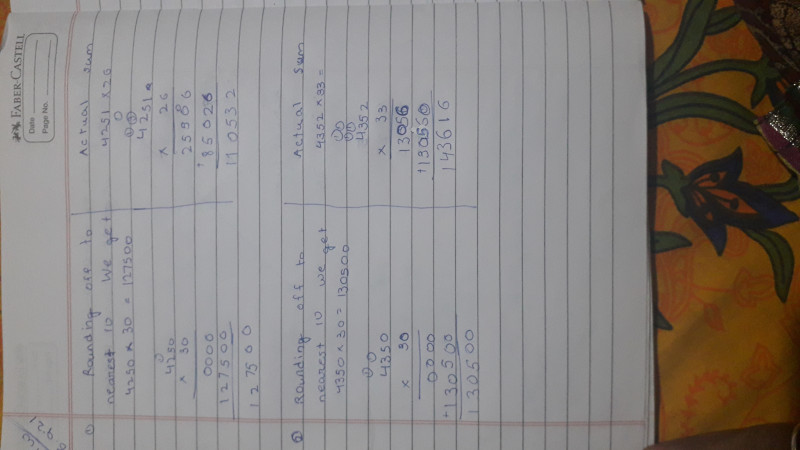 FABER-CASTELL
Date
Page No.
① Rounding off to
nearest 10 we get
4250 × 30 = 127500
4250
× 30
0000
127500
127500
Actual sum
4251 × 26
4251
× 26
25986
+85026
110532
② Rounding off to
nearest 10 we get
4350 × 30 = 130500
4350
× 30
0000
+130500
130500
Actual sum
4352 × 33 =
4352
× 33
13056
+130560
143616